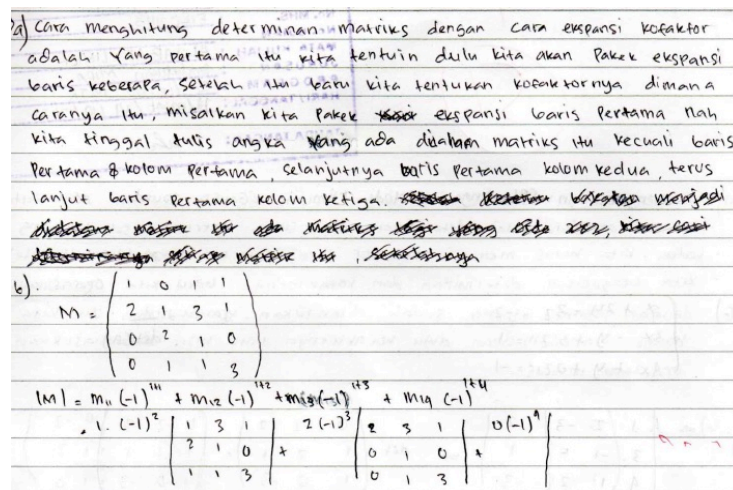 a) Cara menghitung determinan matriks dengan cara ekspansi kofaktor
adalah yang pertama itu kita tentuin dulu kita akan pakek ekspansi
baris keberapa, setelah itu baru kita tentukan kofaktornya dimana
caranya itu misalkan kita pakek ekspansi baris pertama nah
kita tinggal tulis angka yang ada didalam matriks itu kecuali baris
pertama & kolom pertama, selanjutnya baris pertama kolom kedua, terus
lanjut baris pertama kolom ketiga. menjadi
b)
M = ( 1 0 1 1
2 1 3 1
0 2 1 0
0 1 1 3 )
|M| = m11 (-1)^1+1 + m12 (-1)^1+2 + m13 (-1)^1+3 + m14 (-1)^1+4
= 1. (-1)^2 | 1 3 1 | + 2 (-1)^3 | 2 3 1 | + 0 (-1)^4 |
2 1 0 | 0 1 0
1 1 3 | 0 1 3